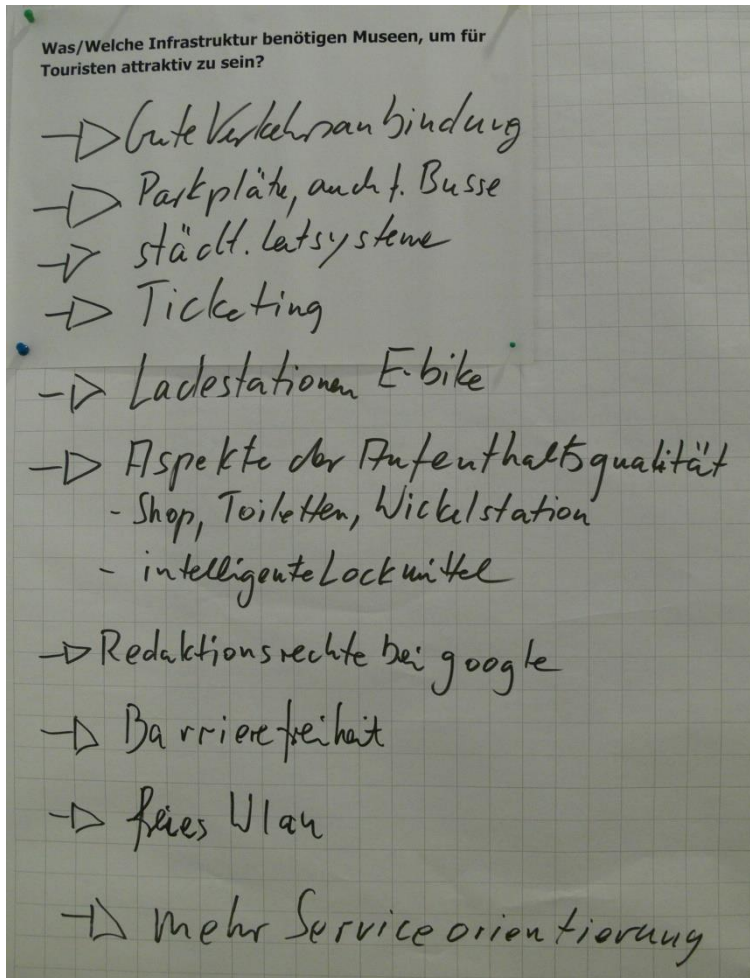 Was/Welche Infrastruktur benötigen Museen, um für
Touristen attraktiv zu sein?
Gute Verkehrsanbindung
Parkpläte, auch f. Busse
städt. Leitsysteme
Ticketing
Ladestationen E-bike
Aspekte der Aufenthaltsqualität
- Shop, Toiletten, Wickelstation
- intelligente Lockmittel
Redaktionsrechte bei google
Barrierefreiheit
freies Wlan
mehr Serviceorientierung